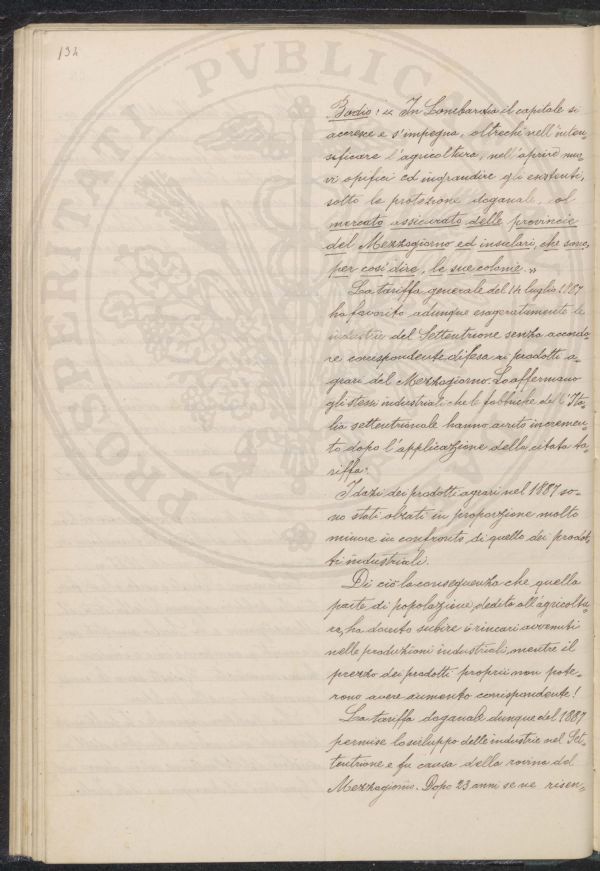 134
PROSPERITATI PVBLICAE
Bodio: « In Lombardia il capitale si
accresce e s'impegna, oltreché nell'inten=
sificare l'agricoltura, nell'aprire nuo=
vi opifici ed ingrandire gli esistenti,
sotto la protezione doganale, col
mercato assicurato delle provincie
del Mezzogiorno ed insulari, che sono,
per così dire, le sue colonie. »
La tariffa generale del 14 luglio 1887
ha favorito adunque esageratamente le
industrie del Settentrione senza accorda=
re corrispondente difesa ai prodotti a=
grari del Mezzogiorno. Lo affermano
gli stessi industriali che le fabbriche dell'Ita=
lia settentrionale hanno avuto incremen=
to dopo l'applicazione della citata ta=
riffa.
I dazi dei prodotti agrari nel 1887 so=
no stati alzati in proporzione molto
minore in confronto di quello dei prodot=
ti industriali.
Di ciò la conseguenza che quella
parte di popolazione, dedita all'agricoltu=
ra, ha dovuto subire i rincari avvenuti
nelle produzioni industriali, mentre il
prezzo dei prodotti proprii non pote=
rono avere aumento corrispondente!
La tariffa doganale dunque del 1887
permise lo sviluppo delle industrie nel Set=
tentrione e fu causa della rovina del
Mezzogiorno. Dopo 23 anni se ne risen=